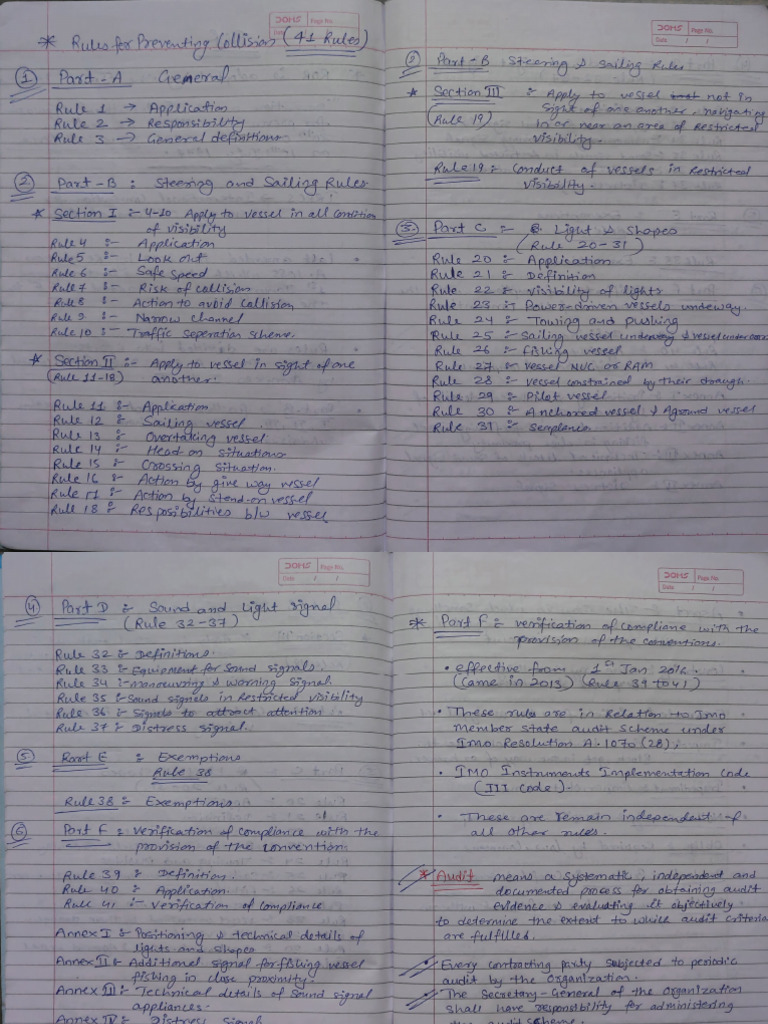 DOMS Page No.
Date / /
* Rules for Preventing Collision (41 Rules)
① Part-A General
Rule 1 → Application
Rule 2 → Responsibility
Rule 3 → General definitions
② Part-B : Steering and Sailing Rules
* Section I :- 4-10 Apply to vessel in all condition
of visibility
Rule 4 :- Application
Rule 5 :- Look out
Rule 6 :- Safe Speed
Rule 7 :- Risk of collision
Rule 8 :- Action to avoid Collision
Rule 9 :- Narrow Channel
Rule 10 :- Traffic seperation scheme.
* Section II :- Apply to vessel in sight of one
(Rule 11-18) another.
Rule 11 :- Application
Rule 12 :- Sailing vessel
Rule 13 :- Overtaking vessel
Rule 14 :- Head-on situations
Rule 15 :- Crossing situation.
Rule 16 :- Action by give way vessel
Rule 17 :- Action by Stend-on vessel
Rule 18 :- Resposibilities b/w vessel
DOMS Page No.
Date / /
② Part-B Steering & Sailing Rules
* Section III :- Apply to vessel not in
(Rule 19) sight of one another, navigating
in or near an area of Restricted
visibility.
Rule 19 :- Conduct of vessels in restricted
visibility.
③ Part C :- Light & Shapes
(Rule 20-31)
Rule 20 :- Application
Rule 21 :- Definition
Rule 22 :- Visibility of lights
Rule 23 :- Power-driven vessels underway.
Rule 24 :- Towing and pushing
Rule 25 :- Sailing vessel underway & vessel under oars
Rule 26 :- fishing vessel
Rule 27 :- vessel NUC or RAM
Rule 28 :- vessel constrained by their draugh.
Rule 29 :- Pilot vessel
Rule 30 :- Anchored vessel & Aground vessel
Rule 31 :- Seaplanes
DOMS Page No.
Date / /
④ Part D :- Sound and Light signal
(Rule 32-37)
Rule 32 :- Definitions.
Rule 33 :- Equipment for Sound signals.
Rule 34 :- manouvring & warning signal.
Rule 35 :- Sound signals in Restricted visibility
Rule 36 :- Signals to attract attention
Rule 37 :- Distress signal.
⑤ Part E : Exemptions
Rule 38
Rule 38 :- Exemptions
⑥ Part F :- Verification of compliance with the
provision of the convention.
Rule 39 :- Definition.
Rule 40 :- Application.
Rule 41 :- Verification of Compliance
Annex I :- Positioning & technical details of
lights and shapes
Annex II :- Additional signal for fishing vessel
fishing in close proximity.
Annex III :- Technical details of Sound signal
appliances.
Annex IV :- Distress signal
DOMS Page No.
Date / /
* Part F :- verification of compliance with the
provision of the conventions.
• effective from 1st Jan 2016.
(Came in 2013) (Rule 39 to 41)
• These rules are in Relation to Imo
member state audit scheme under
Imo Resolution A.1070 (28),
• IMO Instruments Implementation code
(III code).
• These are remain independent of
all other rules.
* Audit means a systematic, independent and
documented process for obtaining audit
evidence & evaluating it objectively
to determine the extent to which audit criteria
are fulfilled.
• Every contracting party subjected to periodic
audit by the organization.
• The Secretary-General of the Organization
shall have responsibility for administering
the audit scheme.